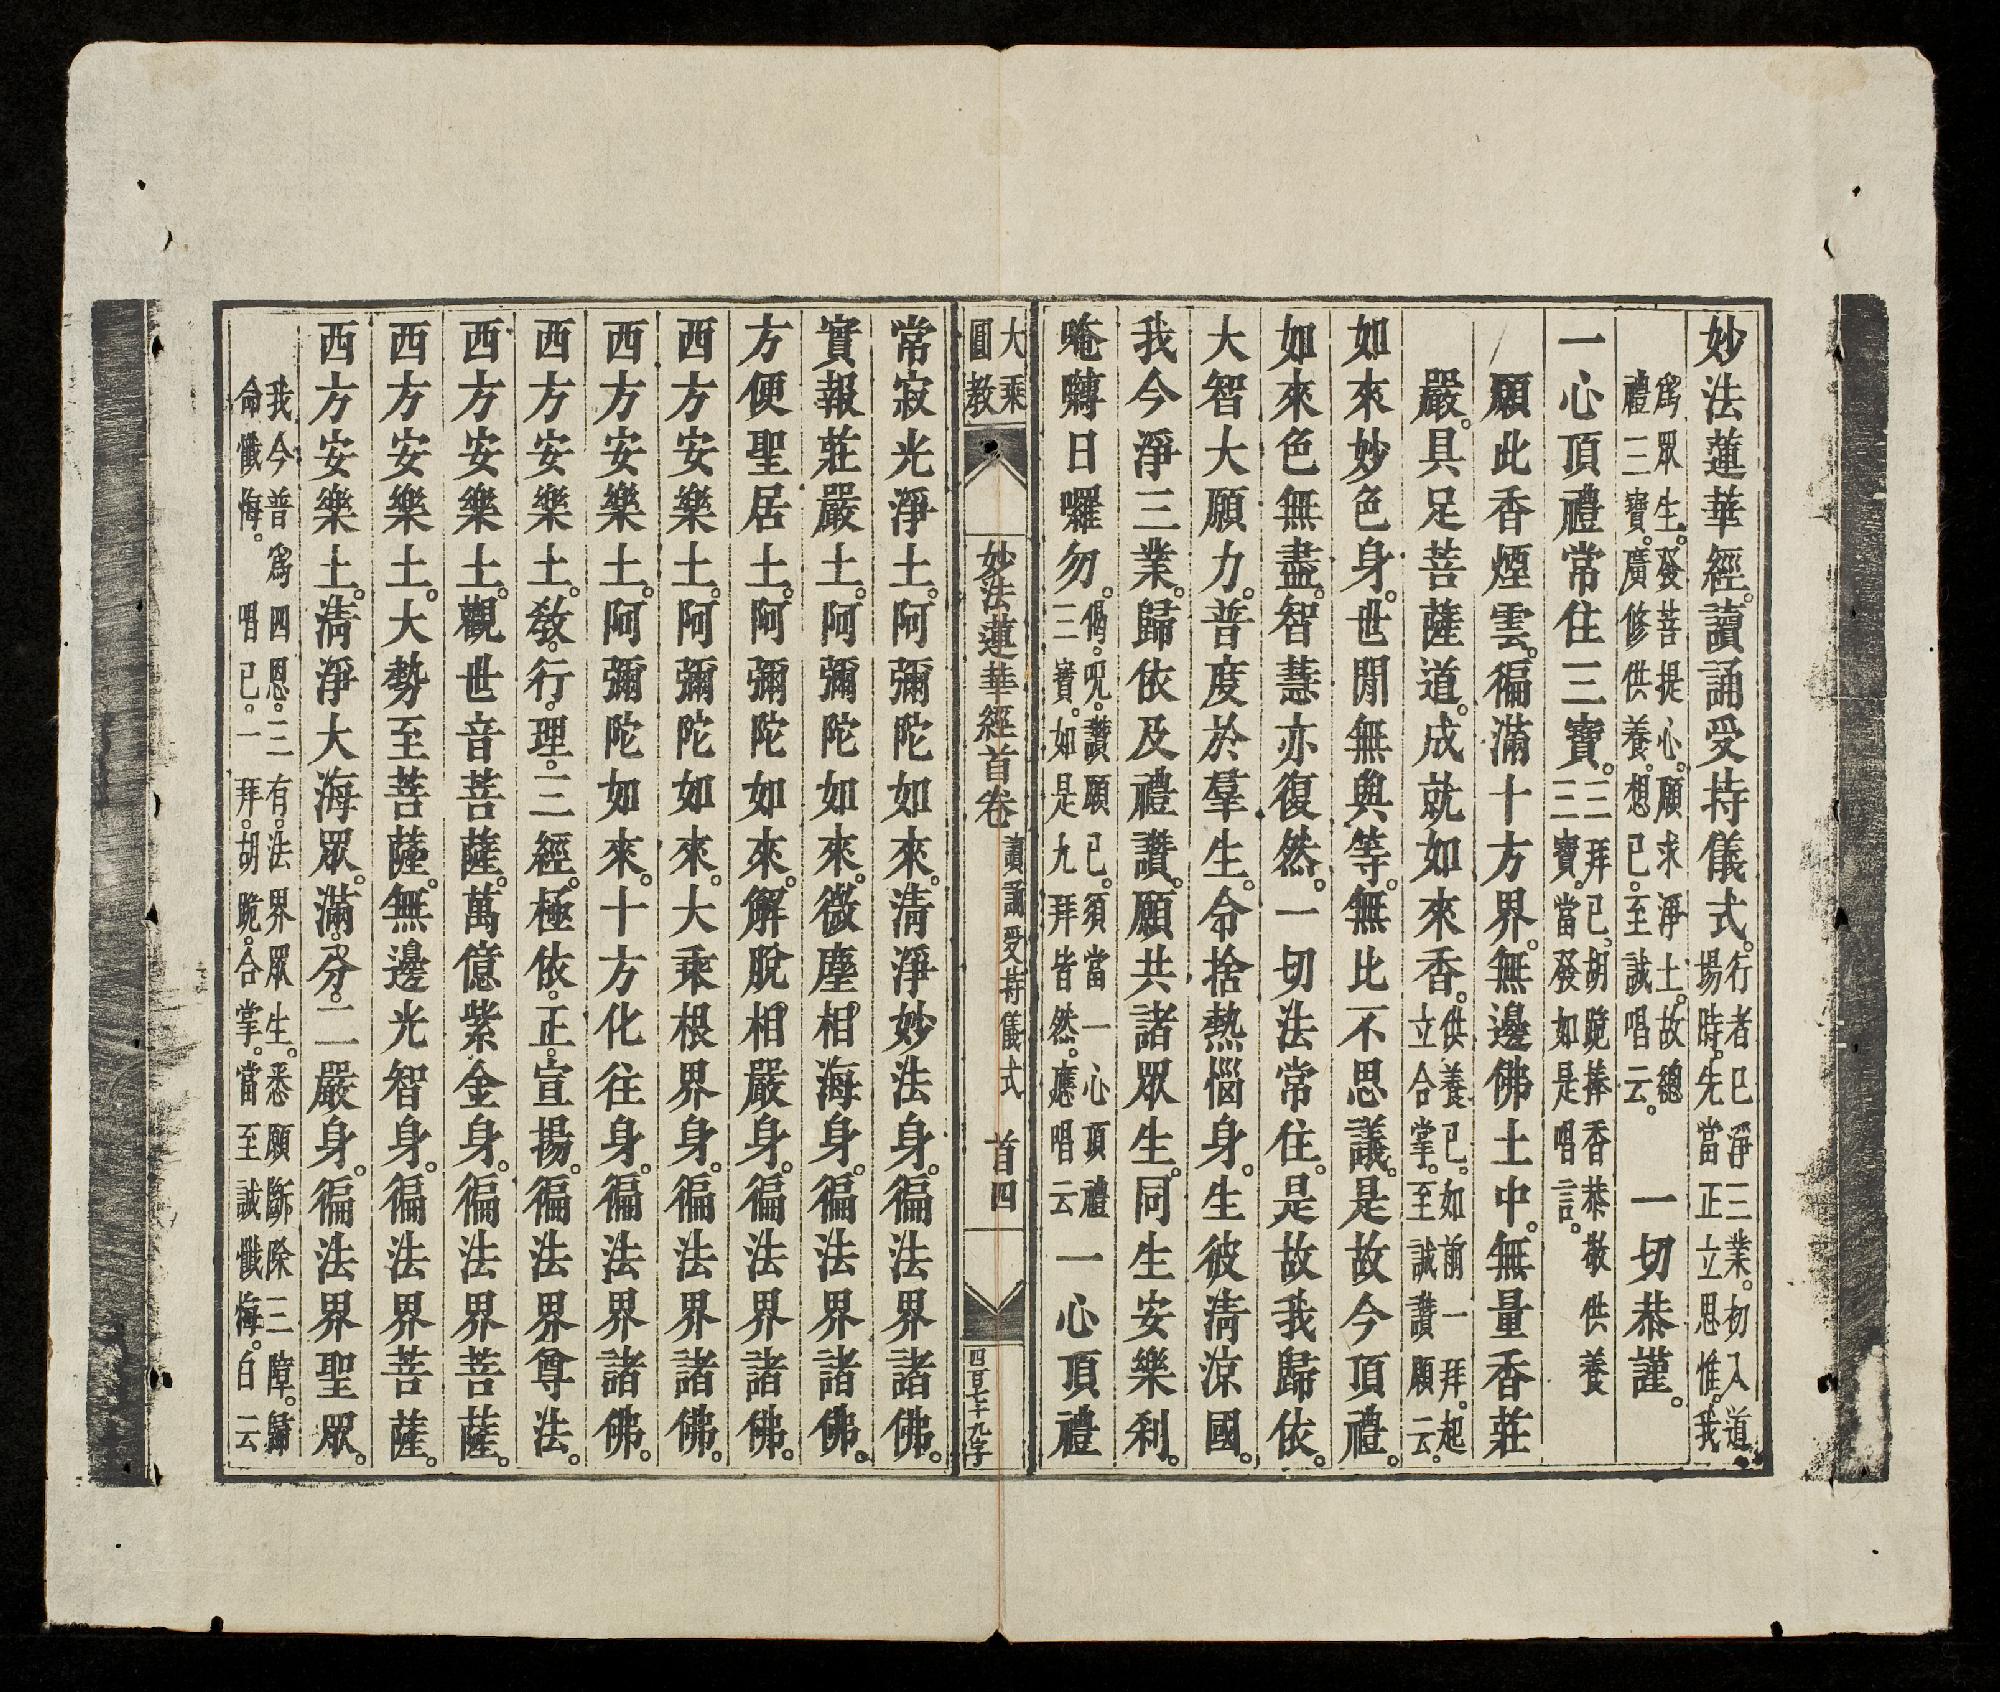 妙法蓮華經。讀誦受持儀式。行者已淨三業。初入道場時。先當正立思惟。我
爲眾生。發菩提心。願求淨土。故總禮三寶。廣修供養。想已。至誠唱云。一切恭謹。
一心頂禮常住三寶。三拜已。胡跪捧香恭敬供養三寶。當發如是唱言。
願此香煙雲。徧滿十方界。無邊佛土中。無量香莊
嚴。具足菩薩道。成就如來香。供養已。如前一拜。起立合掌。至誠讚願云。
如來妙色身。世間無與等。無比不思議。是故今頂禮。
如來色無盡。智慧亦復然。一切法常住。是故我歸依。
大智大願力。普度於羣生。令捨熱惱身。生彼清涼國。
我今淨三業。歸依及禮讚。願共諸眾生。同生安樂刹。
唵囀日囉勿。偈。呪。讚願已。須當一心頂禮三寶。如是九拜皆然。應唱云一心頂禮
大乘圓教
妙法蓮華經首卷
讀誦受持儀式
首四
四百七十九字
常寂光淨土。阿彌陀如來。清淨妙法身。徧法界諸佛。
實報莊嚴土。阿彌陀如來。微塵相海身。徧法界諸佛。
方便聖居土。阿彌陀如來。解脫相嚴身。徧法界諸佛。
西方安樂土。阿彌陀如來。大乘根界身。徧法界諸佛。
西方安樂土。阿彌陀如來。十方化往身。徧法界諸佛。
西方安樂土。教。行。理。三經。極依。正。宣揚。徧法界尊法。
西方安樂土。觀世音菩薩。萬億紫金身。徧法界菩薩。
西方安樂土。大勢至菩薩。無邊光智身。徧法界菩薩。
西方安樂土。清淨大海眾。滿。分。二嚴身。徧法界聖眾。
我今普爲四恩。三有。法界眾生。悉願斷除三障。歸命懺悔。唱已。一拜。胡跪。合掌。當至誠懺悔。白云